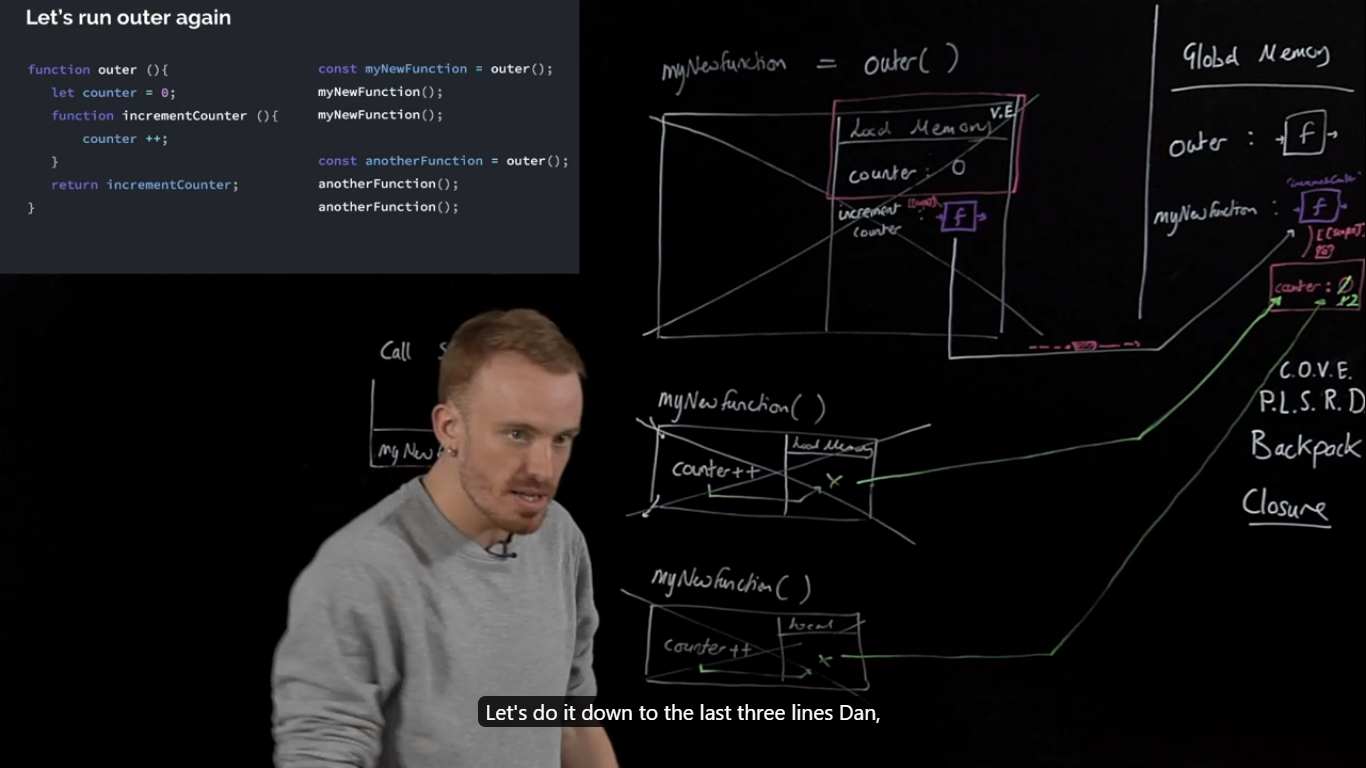 Let's run outer again
function outer (){
let counter = 0;
function incrementCounter (){
counter ++;
}
return incrementCounter;
}
const myNewFunction = outer();
myNewFunction();
myNewFunction();
const anotherFunction = outer();
anotherFunction();
anotherFunction();
myNewfunction = outer( )
V.E.
Local Memory
counter : 0
increment
counter :
f
Call S
myNew
myNewfunction( )
Local Memory
counter++
x
myNewfunction( )
Local
counter++
x
Global Memory
outer : f
"incrementCounter"
myNewfunction : f
[[scope]]
counter : 0
1 2
C.O.V.E.
P.L.S.R.D
Backpack
Closure
Let's do it down to the last three lines Dan,